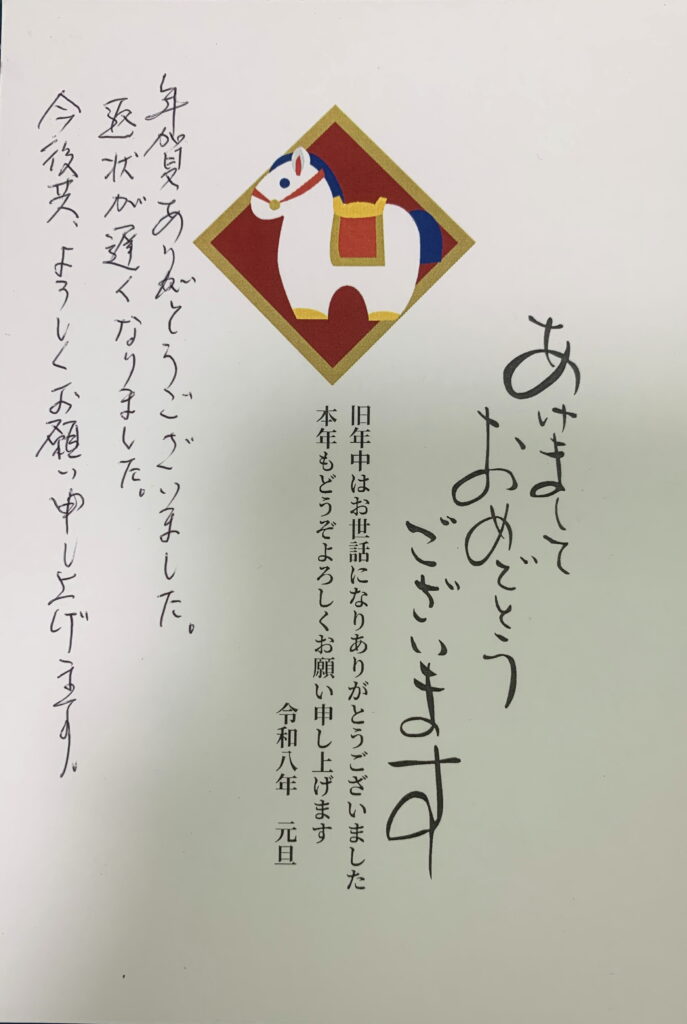 あけまして
おめでとう
ございます
旧年中はお世話になりありがとうございました
本年もどうぞよろしくお願い申し上げます
令和八年　元旦
年賀ありがとうございました。
返状が遅くなりました。
今後共、よろしくお願い申し上げます。